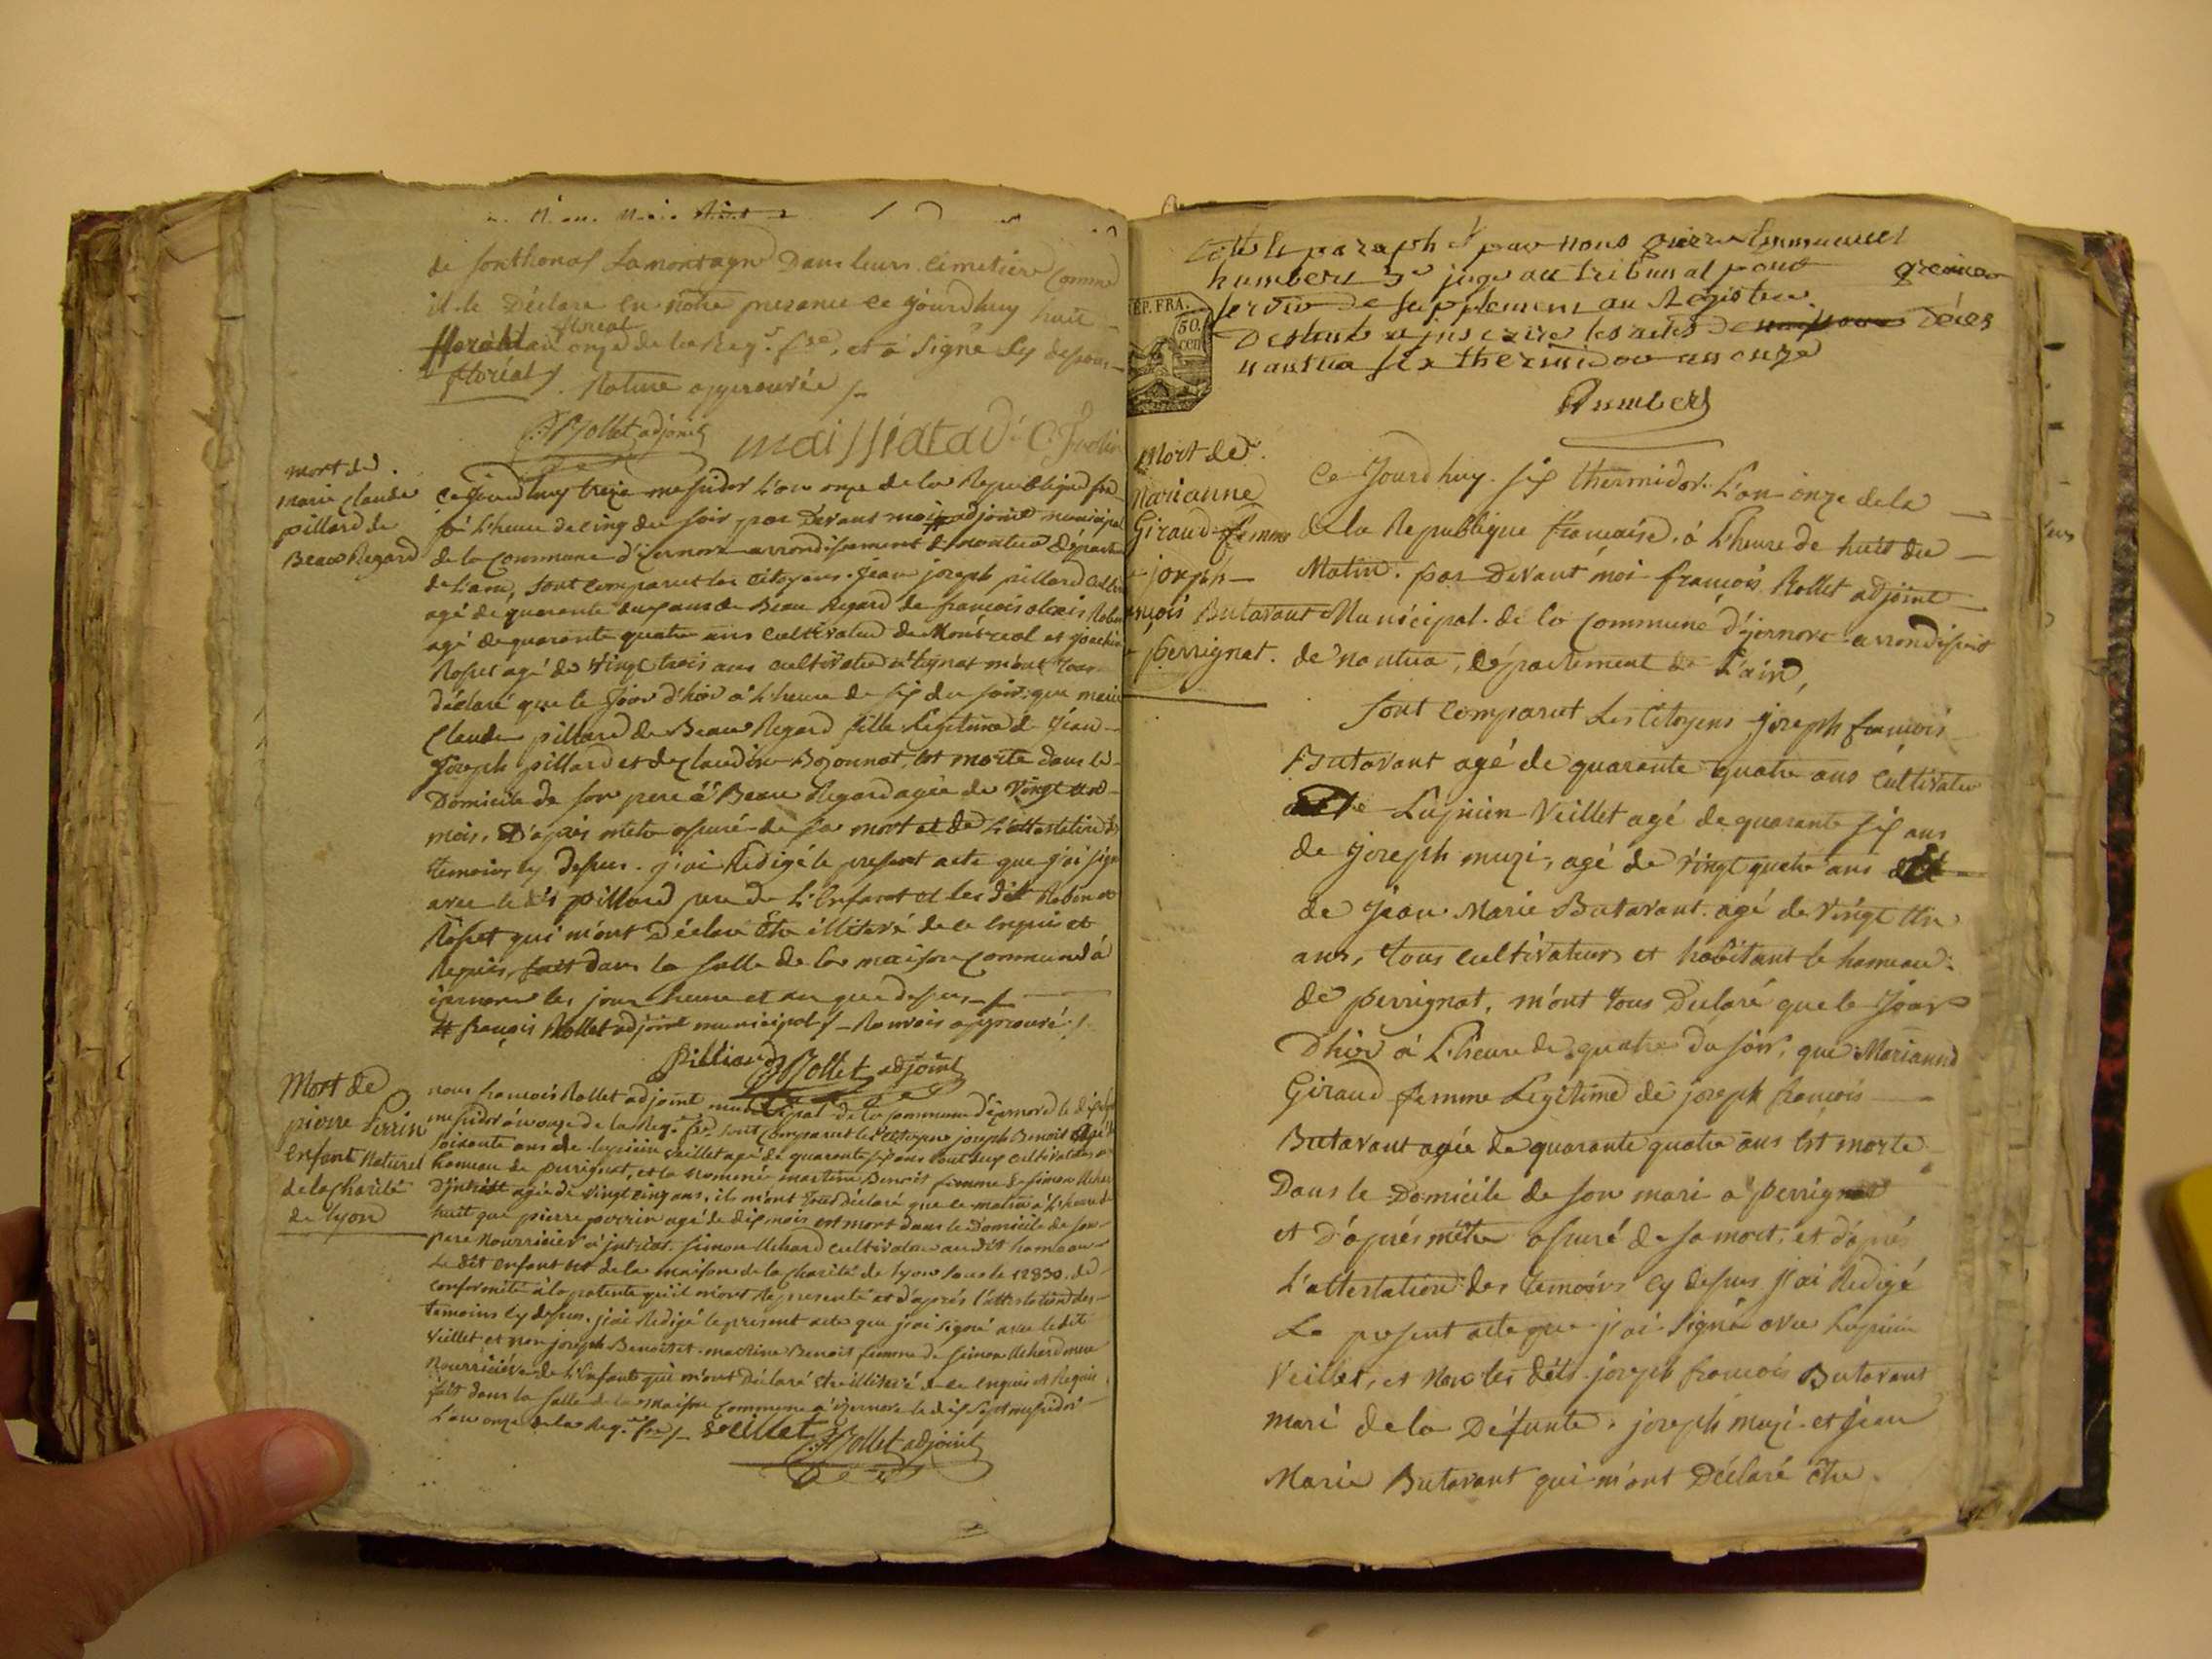 de Lamontagne Dans leurs Cimetiere Comme
il le Déclare En notre presance ce Jourdhuy huit
floréal
floréal an onze de la Rep. fse, et a Signé Cy dessous
floréal Rature approuvée
Rollet adjoint maissiat
mort de
marie claude
pillard de
Beau Regard
Ce Jourdhuy treize messidor L'an onze de la Republique fr
à L'heure de cinq du soir par Devant moi # adjoint municipal
de la Commune d'izernore arrondissement de nantua Départ
de L'ain, sont comparut les citoyens Jean joseph pillard Cultiv
agé de quarante de Beau Regard de françois alexis Robin
agé de quarante quatre ans Cultivateur de Montreal et joachim
Rosset agé de vingt trois ans cultivateur m'ont tous
déclaré que le Jour d'hier à L'heure de six du soir, que marie
Claude pillard de Beau Regard fille Légitime de Jean
Joseph pillard et de claudine Bozonnat, Est morte dans le
Domicile de son pere à Beau Regard agée de vingt un
mois. D'après m'être assuré de sa mort et de L'attestation des
temoins cy dessus. j'ai Redigé le present acte que j'ai signé
avec le dit pillard pere de L'Enfant et les dit Robin et
Rosset qui m'ont Déclaré Etre illiteré de ce Enquis et
Requis, fait dans la salle de la maison commune à
izernore les jour heure et an que dessus
# françois Rollet adjoint municipal Renvois approuvé
pilliard Rollet adjoint
Mort de
pierre Perrin
Enfant Naturel
de la charité
de Lyon
nous francois Rollet adjoint municipal de la Commune d'izernore le dix sept
messidor an onze de la Rep. fse sont comparut les citoyens joseph Benoit agé de
soixante ans de lupicin veillet agé de quarante six ans tout deux cultivateurs
hameau de perrignat, et la nommée martine Benoit femme de simon
agée de vingt cinq ans, ils m'ont tous déclaré que ce matin à L'heure de
huit que pierre perrin agé de dix mois est mort dans le Domicile de son
pere Nourricier à simon cultivateur au dit hameau
Le dit enfant est de la maison de la charité de Lyon sous le 12830. de
conformité à la patente qu'il m'ont Representé et d'après l'attestation des
temoins cy dessus, j'ai Redigé le present acte que j'ai signé avec le dit
veillet et non joseph Benoit et martine Benoit femme de simon mere
Nourriciere de L'Enfant qui m'ont Déclaré Etre illiteré de ce enquis et Requis,
fait dans la salle de la maison Commune d'izernore le dix sept messidor
L'an onze de la Rep. fse veillet Rollet adjoint
Cotté et paraphé par nous pierre Emmanuel
humbert 3e juge au tribunal pour
servir de supplement au Registre
Destiné a inscrire les actes de Décès
nantua six thermidor an onze
Humbert
REP. FRA.
50
cen
Mort de
Marianne
Giraud femme
joseph
ançois Butavant
perrignat.
Ce Jourdhuy six thermidor L'an onze de la
de la Republique française, à L'heure de huit du
Matin. par Devant moi françois Rollet adjoint
Municipal de la Commune d'izernore arrondissent
de nantua, département de L'ain,
sont comparut Les Citoyens joseph françois
Butavant agé de quarante quatre ans Cultivateur
Lupicin Veillet agé de quarante six ans
de joseph muzi, agé de vingt quatre ans
de Jean Marie Butavant agé de vingt un
ans, tous cultivateurs et habitant le hameau
de perrignat, m'ont tous Declaré que le Jour
D'hier à L'heure de quatre du soir, que Marianne
Giraud femme Légitime de joseph françois
Butavant agée de quarante quatre ans Est morte
Dans le Domicile de son mari à perrignat
et d'après m'être assuré de sa mort, et d'après
L'attestation des temoins cy dessus j'ai Redigé
Le present acte que j'ai signé avec Lupicin
Veillet, et Non les dits joseph françois Butavant
mari de la Défunte, joseph muzi et jean
Marie Butavant qui m'ont Déclaré être